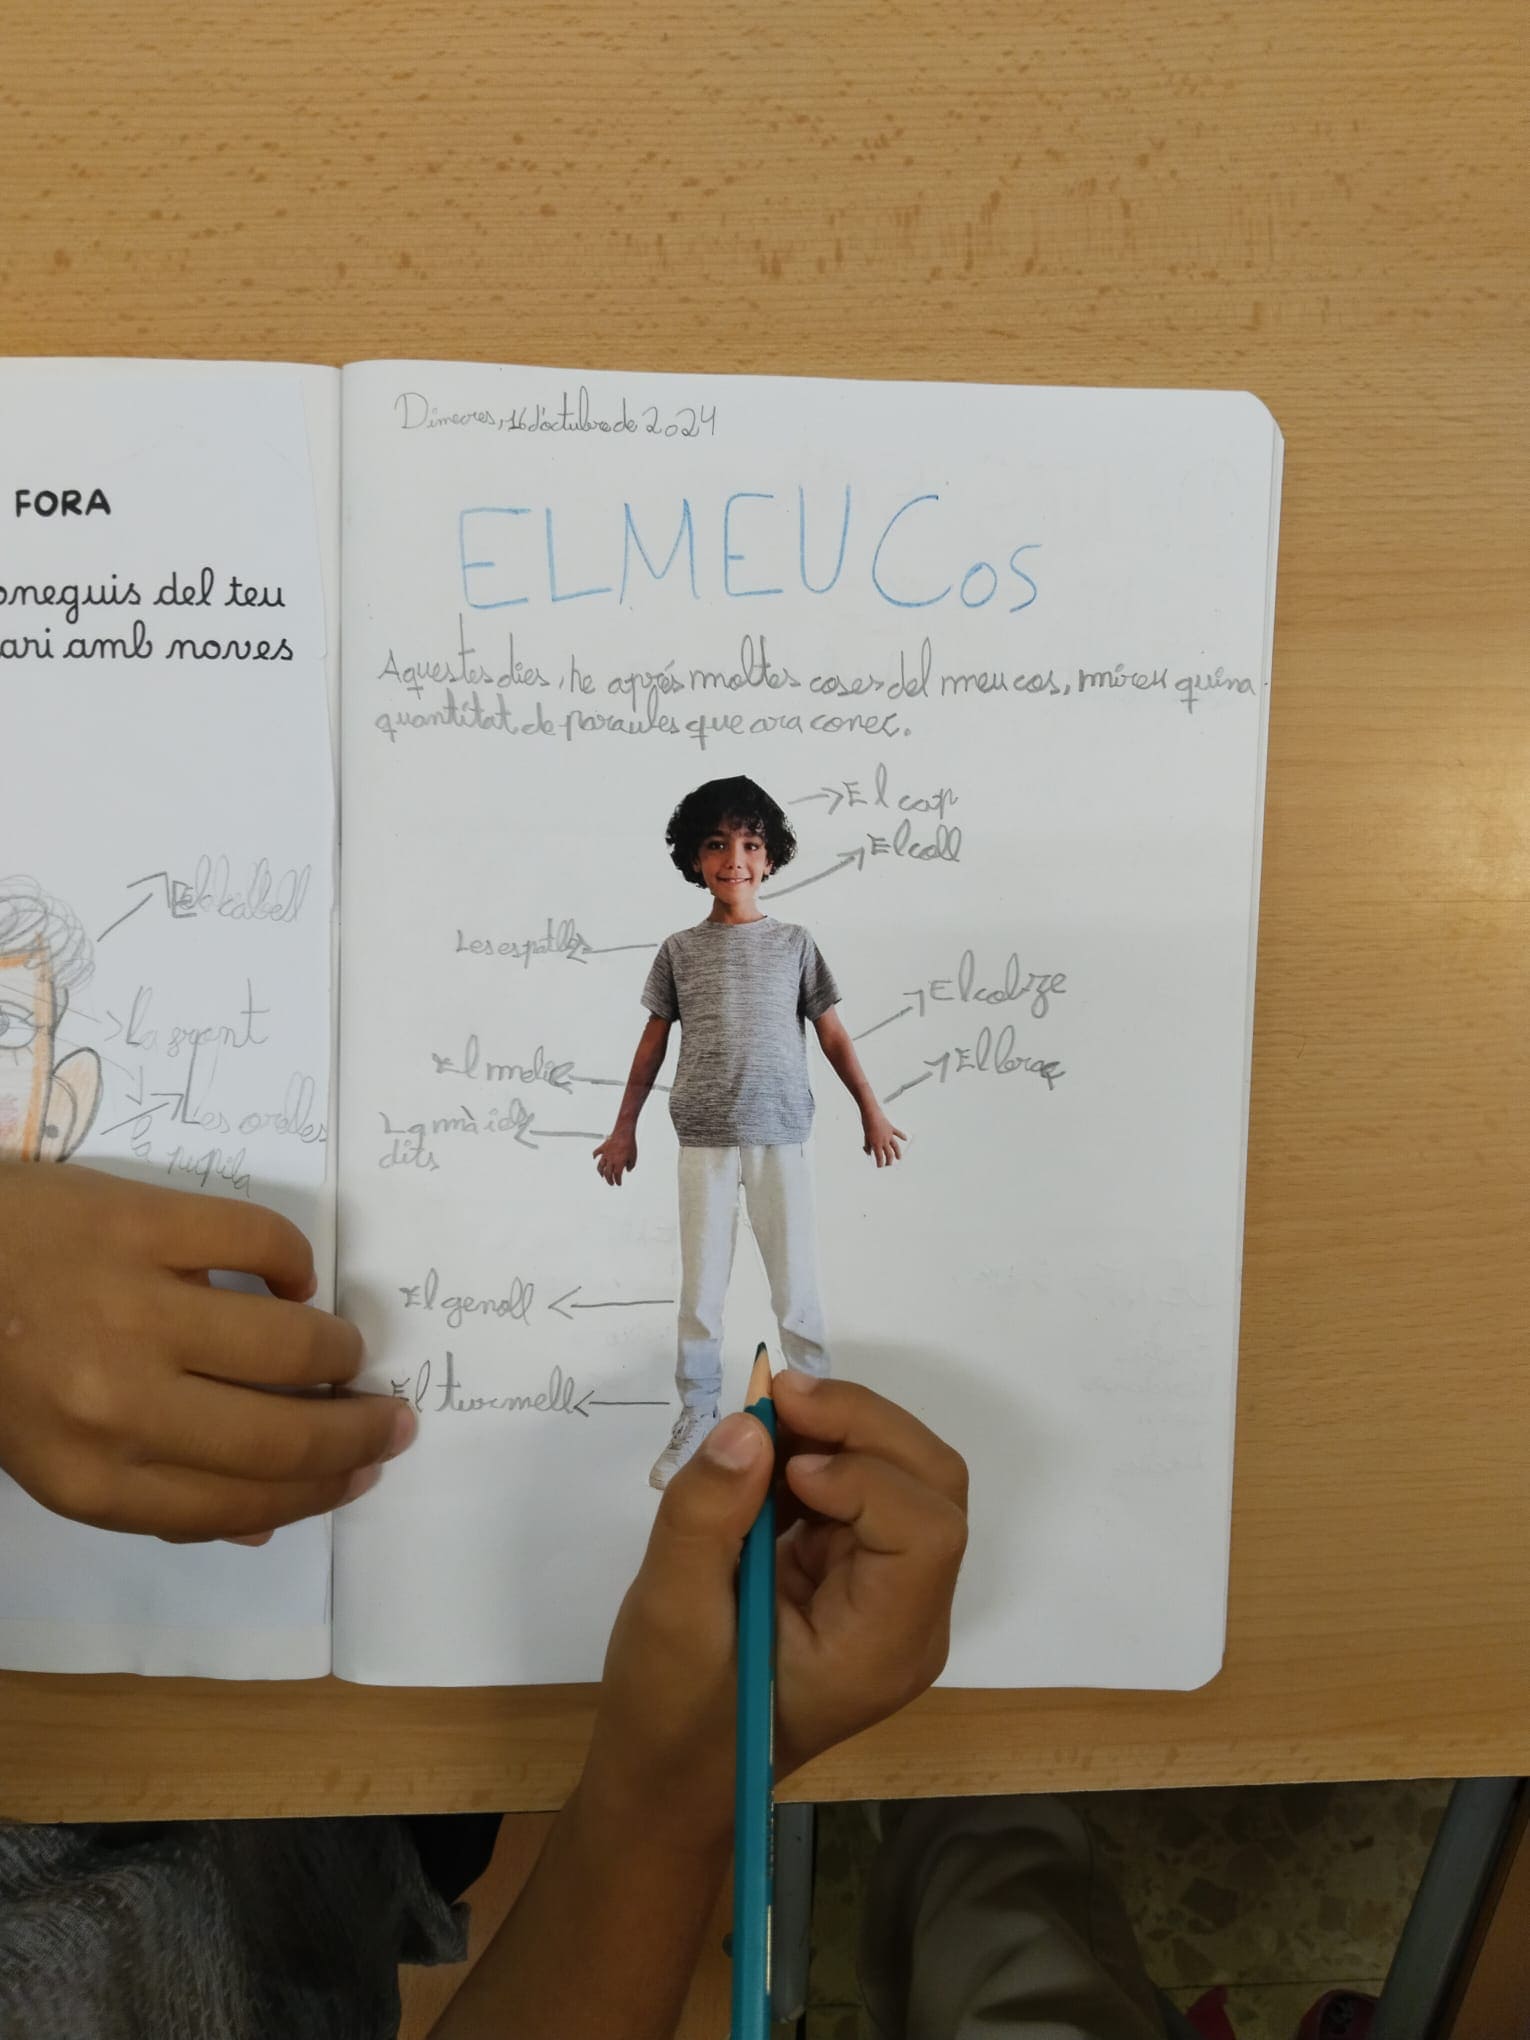 FORA
oneguis del teu
ari amb noves
El cabell
La
Les orelles
la pupila
Dimecres, 16 d'octubre de 2024
EL MEU Cos
Aquestes dies, he aprés moltes coses del meu cos, mireu quina
quantitat de paraules que ara conec.
El cap
El coll
Les espatlles
El colze
El melic
El braç
La mà i els
dits
El genoll
El turmell